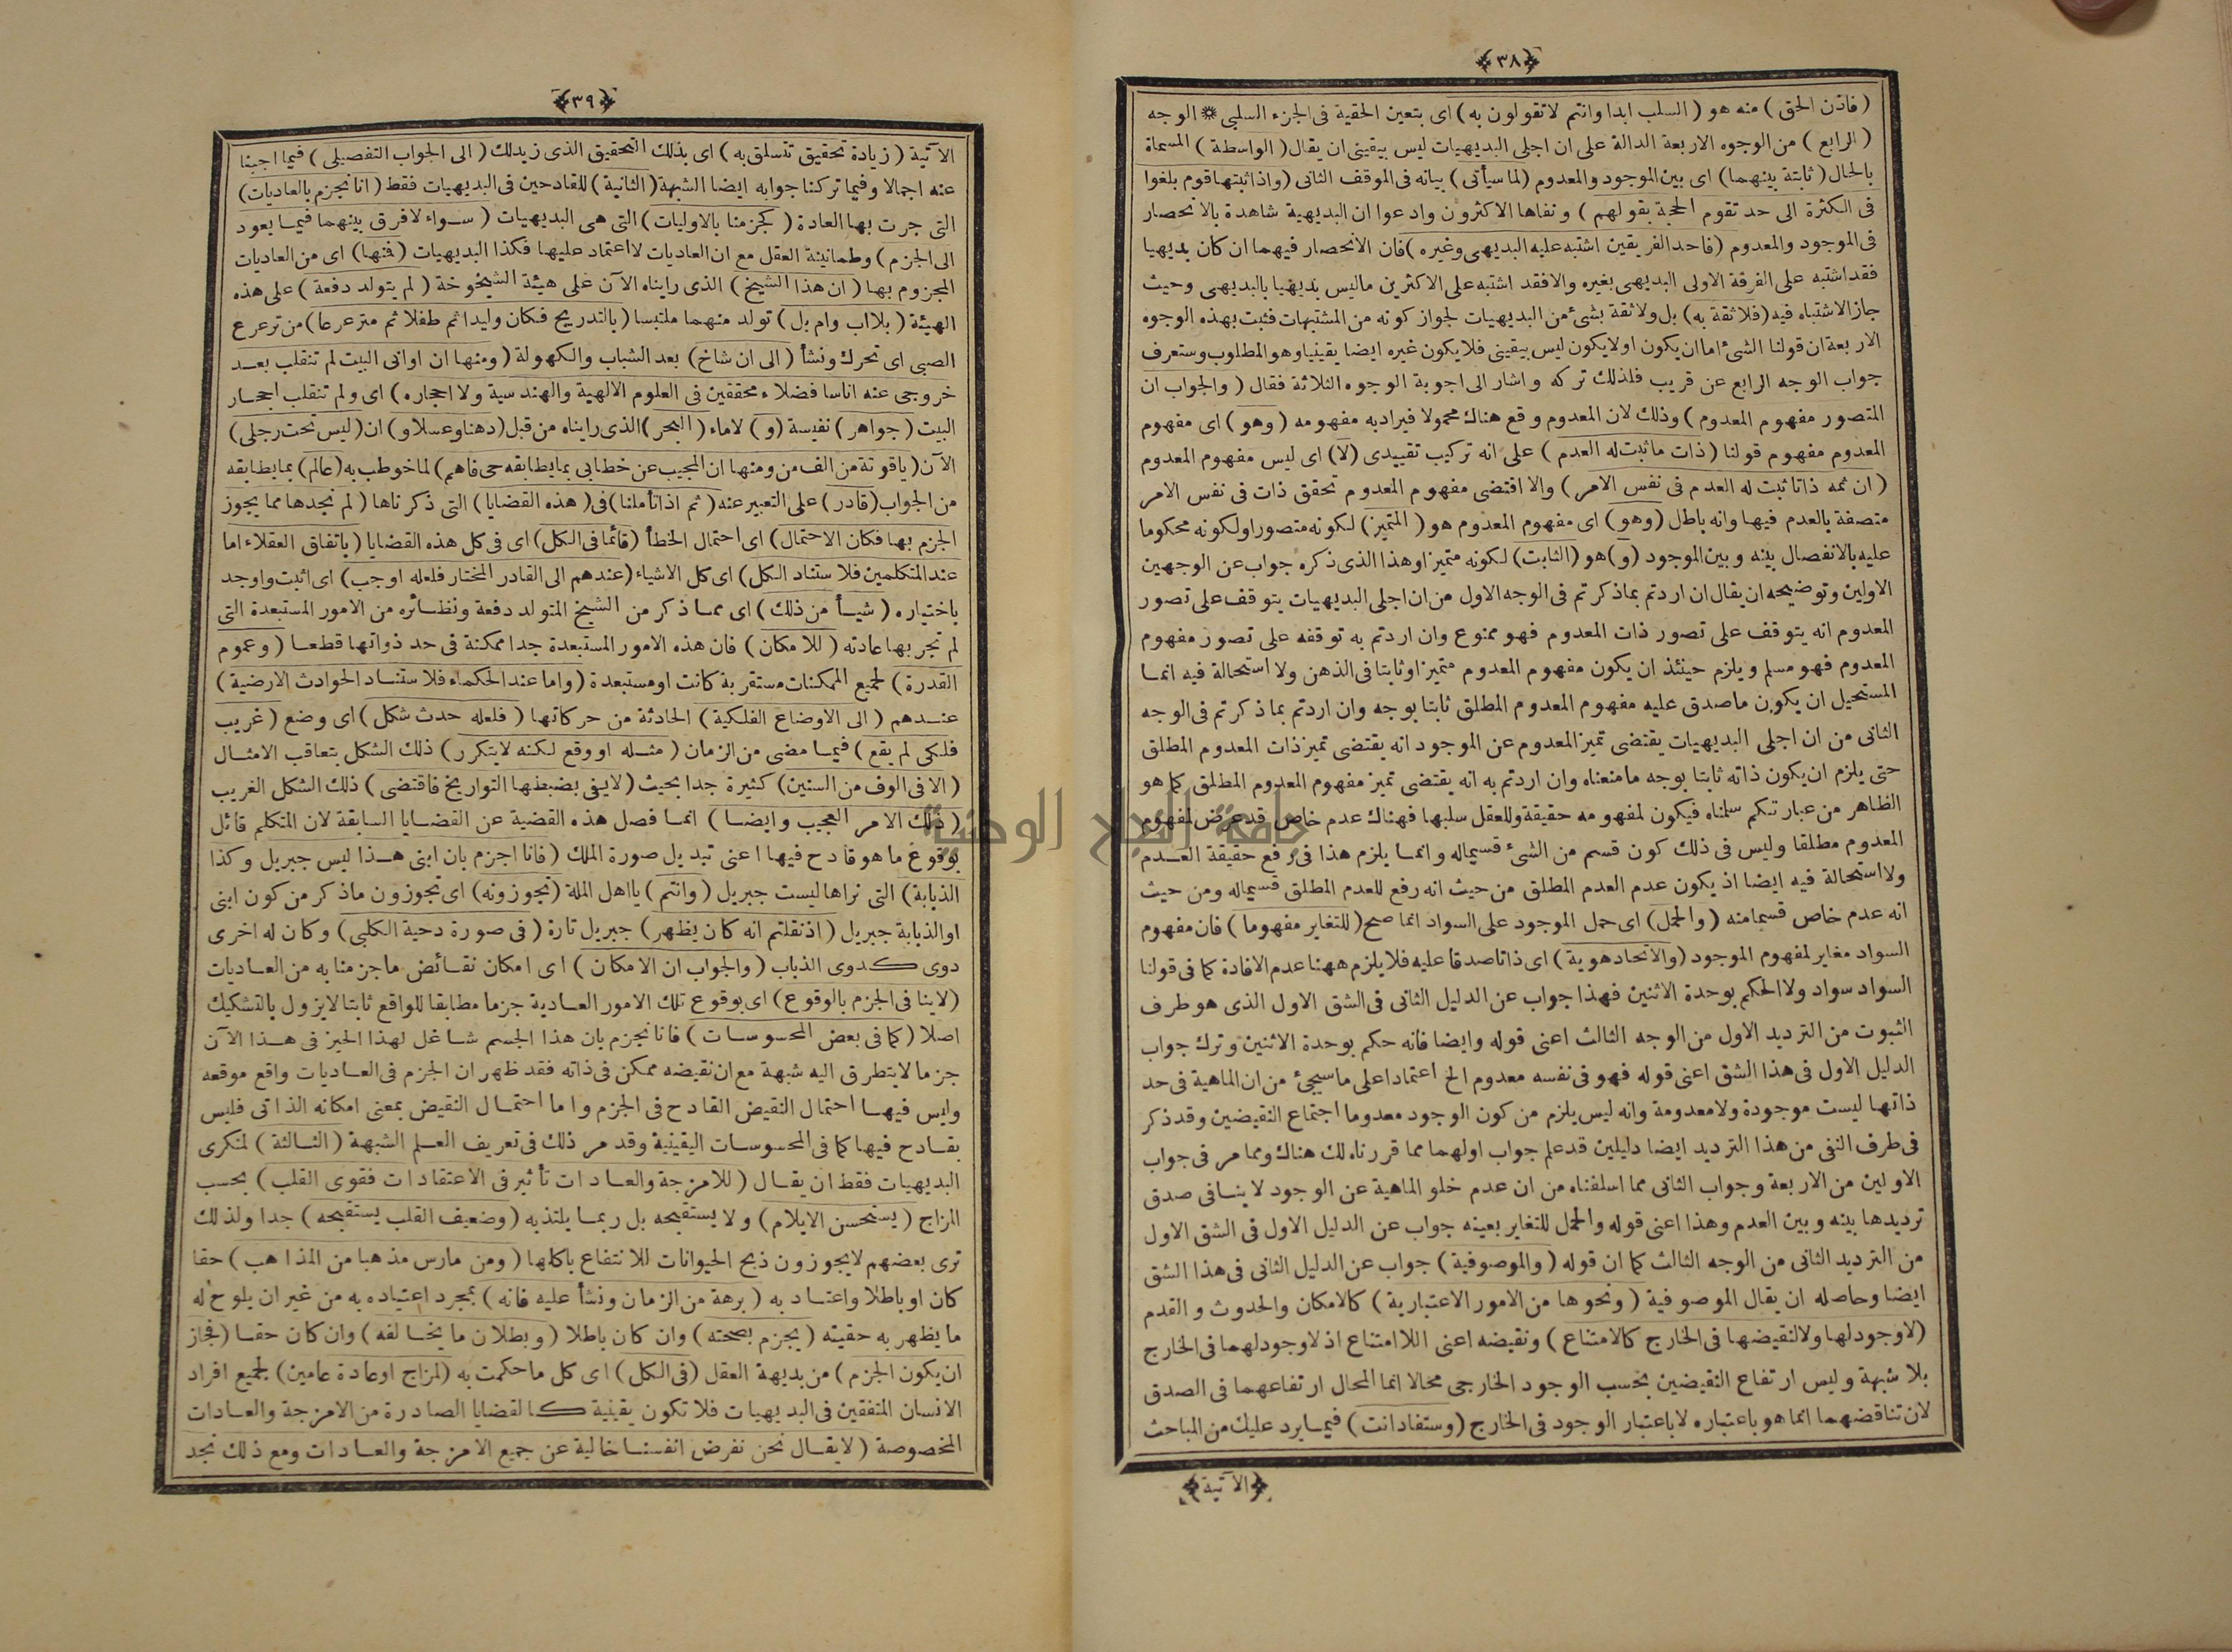 ﴿٣٨﴾
(فاذن الحق) منه هو (السلب ابدا وانتم لاتقولون به) اى بتعين الحقية فى الجزء السلبى ۞ الوجه
(الرابع) من الوجوه الاربعة الدالة على ان اجلى البديهيات ليس بيقينى ان يقال (الواسطة) المسماة
بالحال (ثابتة بينهما) اى بين الموجود والمعدوم (لما سيأتى) بيانه فى الموقف الثانى (واذا ثبتها قوم بلغوا
فى الكثرة الى حد تقوم الحجة بقولهم) ونفاها الاكثرون وادعوا ان البديهية شاهدة بالانحصار
فى الموجود والمعدوم (فاحد الفريقين اشتبه عليه البديهى وغيره) فان الانحصار فيهما ان كان بديهيا
فقد اشتبه على الفرقة الاولى البديهى بغيره والا فقد اشتبه على الاكثرين ماليس بديهيا بالبديهى وحيث
جاز الاشتباه فيه (فلاثقة به) بل ولاثقة بشئ من البديهيات لجواز كونه من المشتبهات فثبت بهذه الوجوه
الاربعة ان قولنا الشئ اما ان يكون اولايكون ليس بيقينى فلايكون غيره ايضا يقينيا وهو المطلوب وستعرف
جواب الوجه الرابع عن قريب فلذلك تركه واشار الى اجوبة الوجوه الثلاثة فقال (والجواب ان
المتصور مفهوم المعدوم) وذلك لان المعدوم وقع هناك محمولا فيراد به مفهومه (وهو) اى مفهوم
المعدوم مفهوم قولنا (ذات ماثبت له العدم) على انه تركيب تقييدى (لا) اى ليس مفهوم المعدوم
(ان ثمه ذاتا ثبت له العدم فى نفس الامر) والا اقتضى مفهوم المعدوم تحقق ذات فى نفس الامر
متصفة بالعدم فيها وانه باطل (وهو) اى مفهوم المعدوم هو (المتميز) لكونه متصورا ولكونه محكوما
عليه بالانفصال بينه وبين الموجود (و) هو (الثابت) لكونه متميزا وهذا الذى ذكره جواب عن الوجهين
الاولين وتوضيحه ان يقال ان اردتم بماذكرتم فى الوجه الاول من ان اجلى البديهيات يتوقف على تصور
المعدوم انه يتوقف على تصور ذات المعدوم فهو ممنوع وان اردتم به توقفه على تصور مفهوم
المعدوم فهو مسلم ويلزم حينئذ ان يكون مفهوم المعدوم متميزا وثابتا فى الذهن ولا استحالة فيه انما
المستحيل ان يكون ماصدق عليه مفهوم المعدوم المطلق ثابتا بوجه وان اردتم بما ذكرتم فى الوجه
الثانى من ان اجلى البديهيات يقتضى تميز المعدوم عن الموجود انه يقتضى تميز ذات المعدوم المطلق
حتى يلزم ان يكون ذاته ثابتا بوجه مامنعناه وان اردتم به انه يقتضى تميز مفهوم المعدوم المطلق كما هو
الظاهر من عبارتكم سلمناه فيكون لمفهومه حقيقة وللعقل سلبها فهناك عدم خاص قد عرض لمفهوم
المعدوم مطلقا وليس فى ذلك كون قسم من الشئ قسيماله وانما يلزم هذا فى رفع حقيقة العدم
ولا استحالة فيه ايضا اذ يكون عدم العدم المطلق من حيث انه رفع للعدم المطلق قسيماله ومن حيث
انه عدم خاص قسما منه (والحمل) اى حمل الموجود على السواد انما صح (للتغاير مفهوما) فان مفهوم
السواد مغاير لمفهوم الموجود (والاتحاد هوية) اى ذاتا صدقا عليه فلايلزم ههنا عدم الافادة كما فى قولنا
السواد سواد ولا الحكم بوحدة الاثنين فهذا جواب عن الدليل الثانى فى الشق الاول الذى هو طرف
الثبوت من الترديد الاول من الوجه الثالث اعنى قوله وايضا فانه حكم بوحدة الاثنين وترك جواب
الدليل الاول فى هذا الشق اعنى قوله فهو فى نفسه معدوم الخ اعتمادا على ماسيجئ من ان الماهية فى حد
ذاتها ليست موجودة ولا معدومة وانه ليس يلزم من كون الوجود معدوما اجتماع النقيضين وقد ذكر
فى طرف النفى من هذا الترديد ايضا دليلين قد علم جواب اولهما مما قررناه لك هناك ومما مر فى جواب
الاولين من الاربعة وجواب الثانى مما اسلفناه من ان عدم خلو الماهية عن الوجود لا ينافى صدق
ترديدها بينه وبين العدم وهذا اعنى قوله والحمل للتغاير بعينه جواب عن الدليل الاول فى الشق الاول
من الترديد الثانى من الوجه الثالث كما ان قوله (والموصوفية) جواب عن الدليل الثانى فى هذا الشق
ايضا وحاصله ان يقال الموصوفية (ونحوها من الامور الاعتبارية) كالامكان والحدوث والقدم
(لاوجود لها ولا لنقيضها فى الخارج كالامتناع) ونقيضه اعنى اللاامتناع اذ لاوجود لهما فى الخارج
بلا شبهة وليس ارتفاع النقيضين بحسب الوجود الخارجى محالا انما المحال ارتفاعهما فى الصدق
لان تناقضهما انما هو باعتباره لا باعتبار الوجود فى الخارج (وستفاد انت) فيما يرد عليك من المباحث
﴿الآتية﴾
﴿٣٩﴾
الآتية (زيادة تحقيق تتسلق به) اى بذلك التحقيق الذى زيد لك (الى الجواب التفصيلى) فيما اجبنا
عنه اجمالا وفيما تركنا جوابه ايضا الشبهة (الثانية) للقادحين فى البديهيات فقط (انا نجزم بالعاديات)
التى جرت بها العادة (كجزمنا بالاوليات) التى هى البديهيات (سواء لافرق بينهما فيما يعود
الى الجزم) وطمانينة العقل مع ان العاديات لا اعتماد عليها فكذا البديهيات (فمنها) اى من العاديات
المجزوم بها (ان هذا الشيخ) الذى رايناه الآن على هيئة الشيخوخة (لم يتولد دفعة) على هذه
الهيئة (بلا اب وام بل) تولد منهما ملتبسا (بالتدريج فكان وليدا ثم طفلا ثم مترعرعا) من ترعرع
الصبى اى تحرك ونشأ (الى ان شاخ) بعد الشباب والكهولة (ومنها ان اوانى البيت لم تنقلب بعد
خروجى عنه اناسا فضلاء محققين فى العلوم الالهية والهندسية ولا احجاره) اى ولم تنقلب احجار
البيت (جواهر) نفيسة (و) لاماء (البحر) الذى رايناه من قبل (دهنا وعسلا و) ان (ليس تحت رجلى)
الآن (ياقوتة من الف من ومنها ان المجيب عن خطابى بما يطابقه حى فاهم) لما خوطب به (عالم) بما يطابقه
من الجواب (قادر) على التعبير عنه (ثم اذا تأملنا) فى (هذه القضايا) التى ذكرناها (لم نجدها مما يجوز
الجزم بها فكان الاحتمال) اى احتمال الخطأ (قائما فى الكل) اى فى كل هذه القضايا (باتفاق العقلاء اما
عند المتكلمين فلاستناد الكل) اى كل الاشياء (عندهم الى القادر المختار فلعله اوجب) اى اثبت واوجد
باختياره (شيأ من ذلك) اى مما ذكر من الشيخ المتولد دفعة ونظائره من الامور المستبعدة التى
لم تجر بها عادته (للامكان) فان هذه الامور المستبعدة جدا ممكنة فى حد ذواتها قطعا (وعموم
القدرة) لجميع الممكنات مستقربة كانت او مستبعدة (واما عند الحكماء فلاستناد الحوادث الارضية)
عندهم (الى الاوضاع الفلكية) الحادثة من حركاتها (فلعله حدث شكل) اى وضع (غريب
فلكى لم يقع) فيما مضى من الزمان (مثله او وقع لكنه لايتكرر) ذلك الشكل بتعاقب الامثال
(الا فى الوف من السنين) كثيرة جدا بحيث (لايفى بضبطها التواريخ فاقتضى) ذلك الشكل الغريب
(ذلك الامر العجيب وايضا) انما فصل هذه القضية عن القضايا السابقة لان المتكلم قائل
بوقوع ما هو قادح فيها اعنى تبديل صورة الملك (فانا اجزم بان ابنى هذا ليس جبريل وكذا
الذبابة) التى نراها ليست جبريل (وانتم) يا اهل الملة (تجوزونه) اى تجوزون ماذكر من كون ابنى
او الذبابة جبريل (اذ نقلتم انه كان يظهر) جبريل تارة (فى صورة دحية الكلبى) وكان له اخرى
دوى كدوى الذباب (والجواب ان الامكان) اى امكان نقائض ماجزمنا به من العاديات
(لاينافى الجزم بالوقوع) اى بوقوع تلك الامور العادية جزما مطابقا للواقع ثابتا لايزول بالتشكيك
اصلا (كما فى بعض المحسوسات) فانا نجزم بان هذا الجسم شاغل لهذا الحيز فى هذا الآن
جزما لايتطرق اليه شبهة مع ان نقيضه ممكن فى ذاته فقد ظهر ان الجزم فى العاديات واقع موقعه
وليس فيها احتمال النقيض القادح فى الجزم واما احتمال النقيض بمعنى امكانه الذاتى فليس
بقادح فيها كما فى المحسوسات اليقينية وقد مر ذلك فى تعريف العلم الشبهة (الثالثة) لمنكرى
البديهيات فقط ان يقال (للامزجة والعادات تأثير فى الاعتقادات فقوى القلب) بحسب
المزاج (يستحسن الايلام) ولا يستقبحه بل ربما يلتذبه (وضعيف القلب يستقبحه) جدا ولذلك
ترى بعضهم لايجوزون ذبح الحيوانات للانتفاع باكلها (ومن مارس مذهبا من المذاهب) حقا
كان او باطلا واعتاد به (برهة من الزمان ونشأ عليه فانه) بمجرد اعتياده به من غير ان يلوح له
ما يظهر به حقيته (يجزم بصحته) وان كان باطلا (وبطلان ما يخالفه) وان كان حقا (فجاز
ان يكون الجزم) من بديهة العقل (فى الكل) اى كل ماحكمت به (لمزاج او عادة عامين) لجميع افراد
الانسان المتفقين فى البديهيات فلا تكون يقينية كالقضايا الصادرة من الامزجة والعادات
المخصوصة (لايقال نحن نفرض انفسنا خالية عن جميع الامزجة والعادات ومع ذلك نجد
جامعة النجاح الوطنية